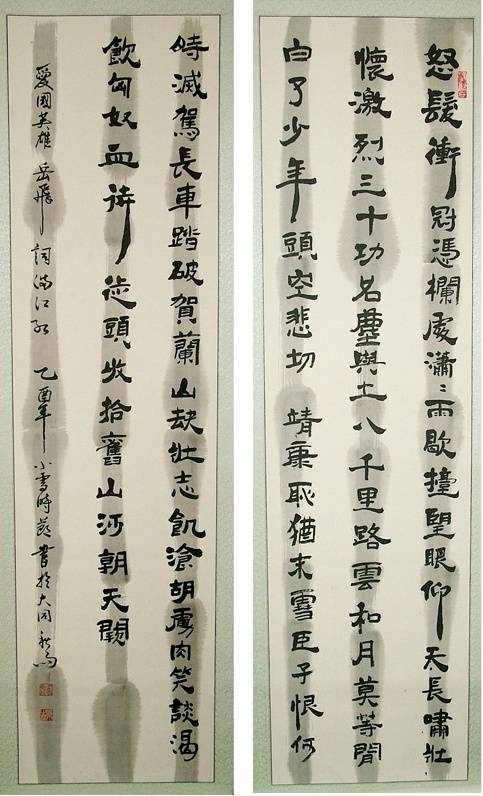 怒髮衝冠憑欄處瀟〻雨歇擡望眼仰天長嘯壯
懷激烈三十功名塵與土八千里路雲和月莫等閒
白了少年頭空悲切靖康恥猶未雪臣子恨何
時滅駕長車踏破賀蘭山缺壯志飢湌胡虜肉笑談渴
飲匈奴血待從頭收拾舊山河朝天闕
愛國英雄岳飛詞滿江紅乙酉年小雪時節書於大同